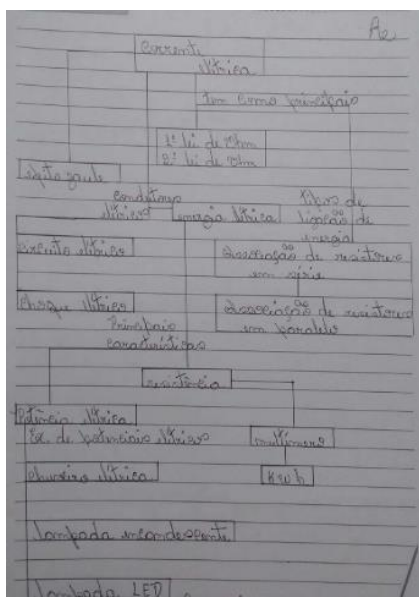 Corrente
elétrica
tem como principais
1ª lei de Ohm
2ª lei de Ohm
efeito joule
condutores
elétricos
energia elétrica
tipos de
ligação de
energia
circuito elétrico
associação de resistores
em série
choque elétrico
associação de resistores
em paralelo
Principais
características
resistência
Potência elétrica
Ex. de potenciais elétricos
multímero
chuveiro elétrico
kwh
lampada incandescente
lampada LED